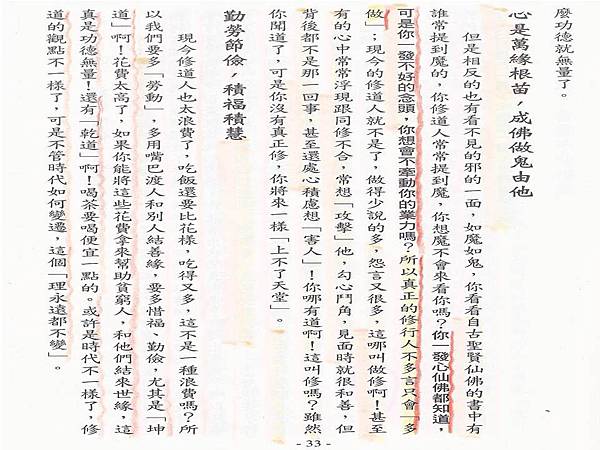 麼功德就無量了。
心是萬緣根苗，成佛做鬼由他
但是相反的也有看不見的邪的一面，如魔如鬼，你看看自古聖賢仙佛的書中有
誰常提到魔的，你修道人常常提到魔，你想魔不會來看你嗎？你一發心仙佛都知道，
可是你一發不好的念頭，你想會不牽動你的業力嗎？所以真正的修行人不多言只會「多
做」；現今的修道人就不是了，做得少說的多，怨言又很多，這哪叫做修啊！甚至
有的心中常常浮現跟同修不合，常想「攻擊」他，勾心鬥角，見面時就很和善，但
背後都不是那一回事，甚至還處心積慮想「害人」！你哪有道啊！這叫修嗎？雖然
你聞道了，可是你沒有真正修，你將來一樣「上不了天堂」。
勤勞節儉，積福積慧
現今修道人也太浪費了，吃飯還要比花樣，吃得又多，這不是一種浪費嗎？所
以我們要多「勞動」，多用嘴巴渡人和別人結善緣，要多惜福、勤儉，尤其是「坤
道」啊！花費太高了，如果你能將這些花費拿來幫助貧窮人，和他們結來世緣，這
真是功德無量！還有「乾道」啊！喝茶要喝便宜一點的。或許是時代不一樣了，修
道的觀點不一樣了，可是不管時代如何變遷，這個「理永遠都不變」。
- 33 -